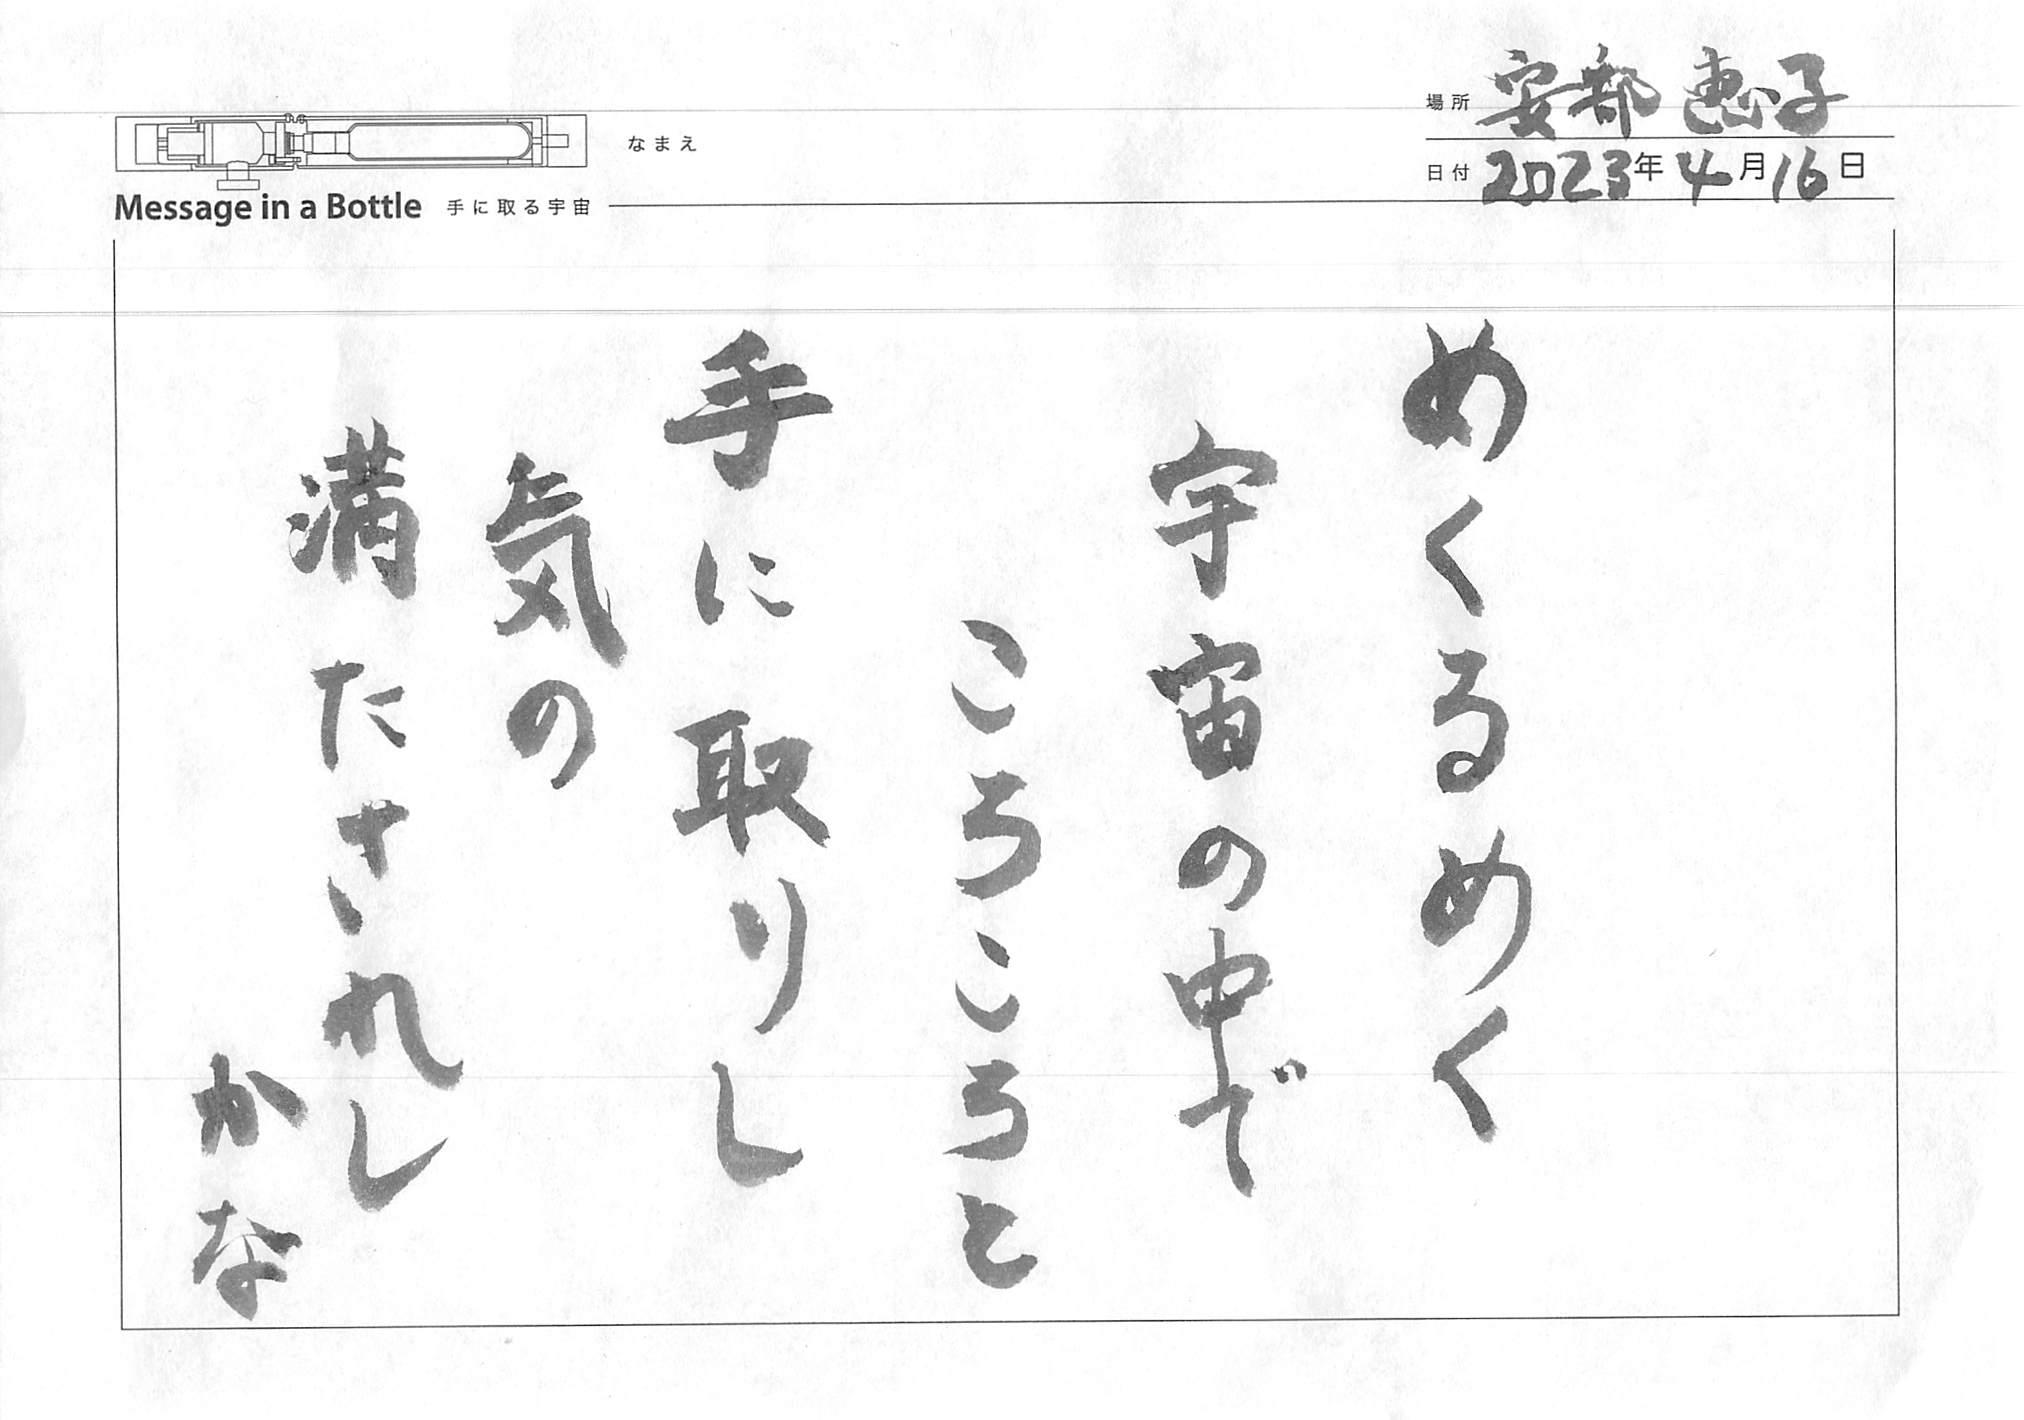 場所 安部 恵子
なまえ
日付 2023年4月16日
Message in a Bottle 手に取る宇宙
めくるめく
宇宙の中で
ころころと
手に取りし
気の
満たされし
かな